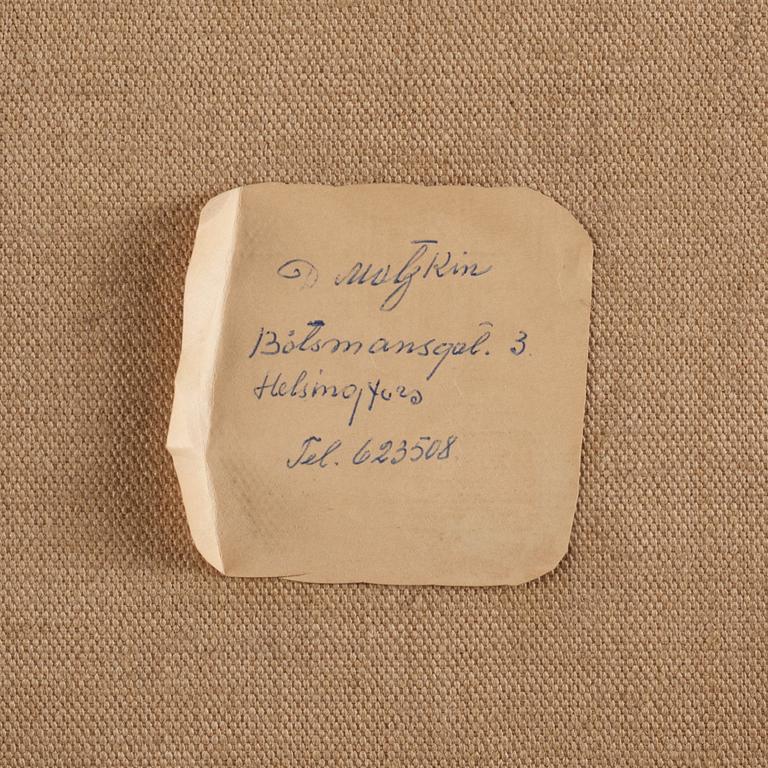 D Motzkin
Båtsmansgat. 3.
Helsingfors
Tel. 623508